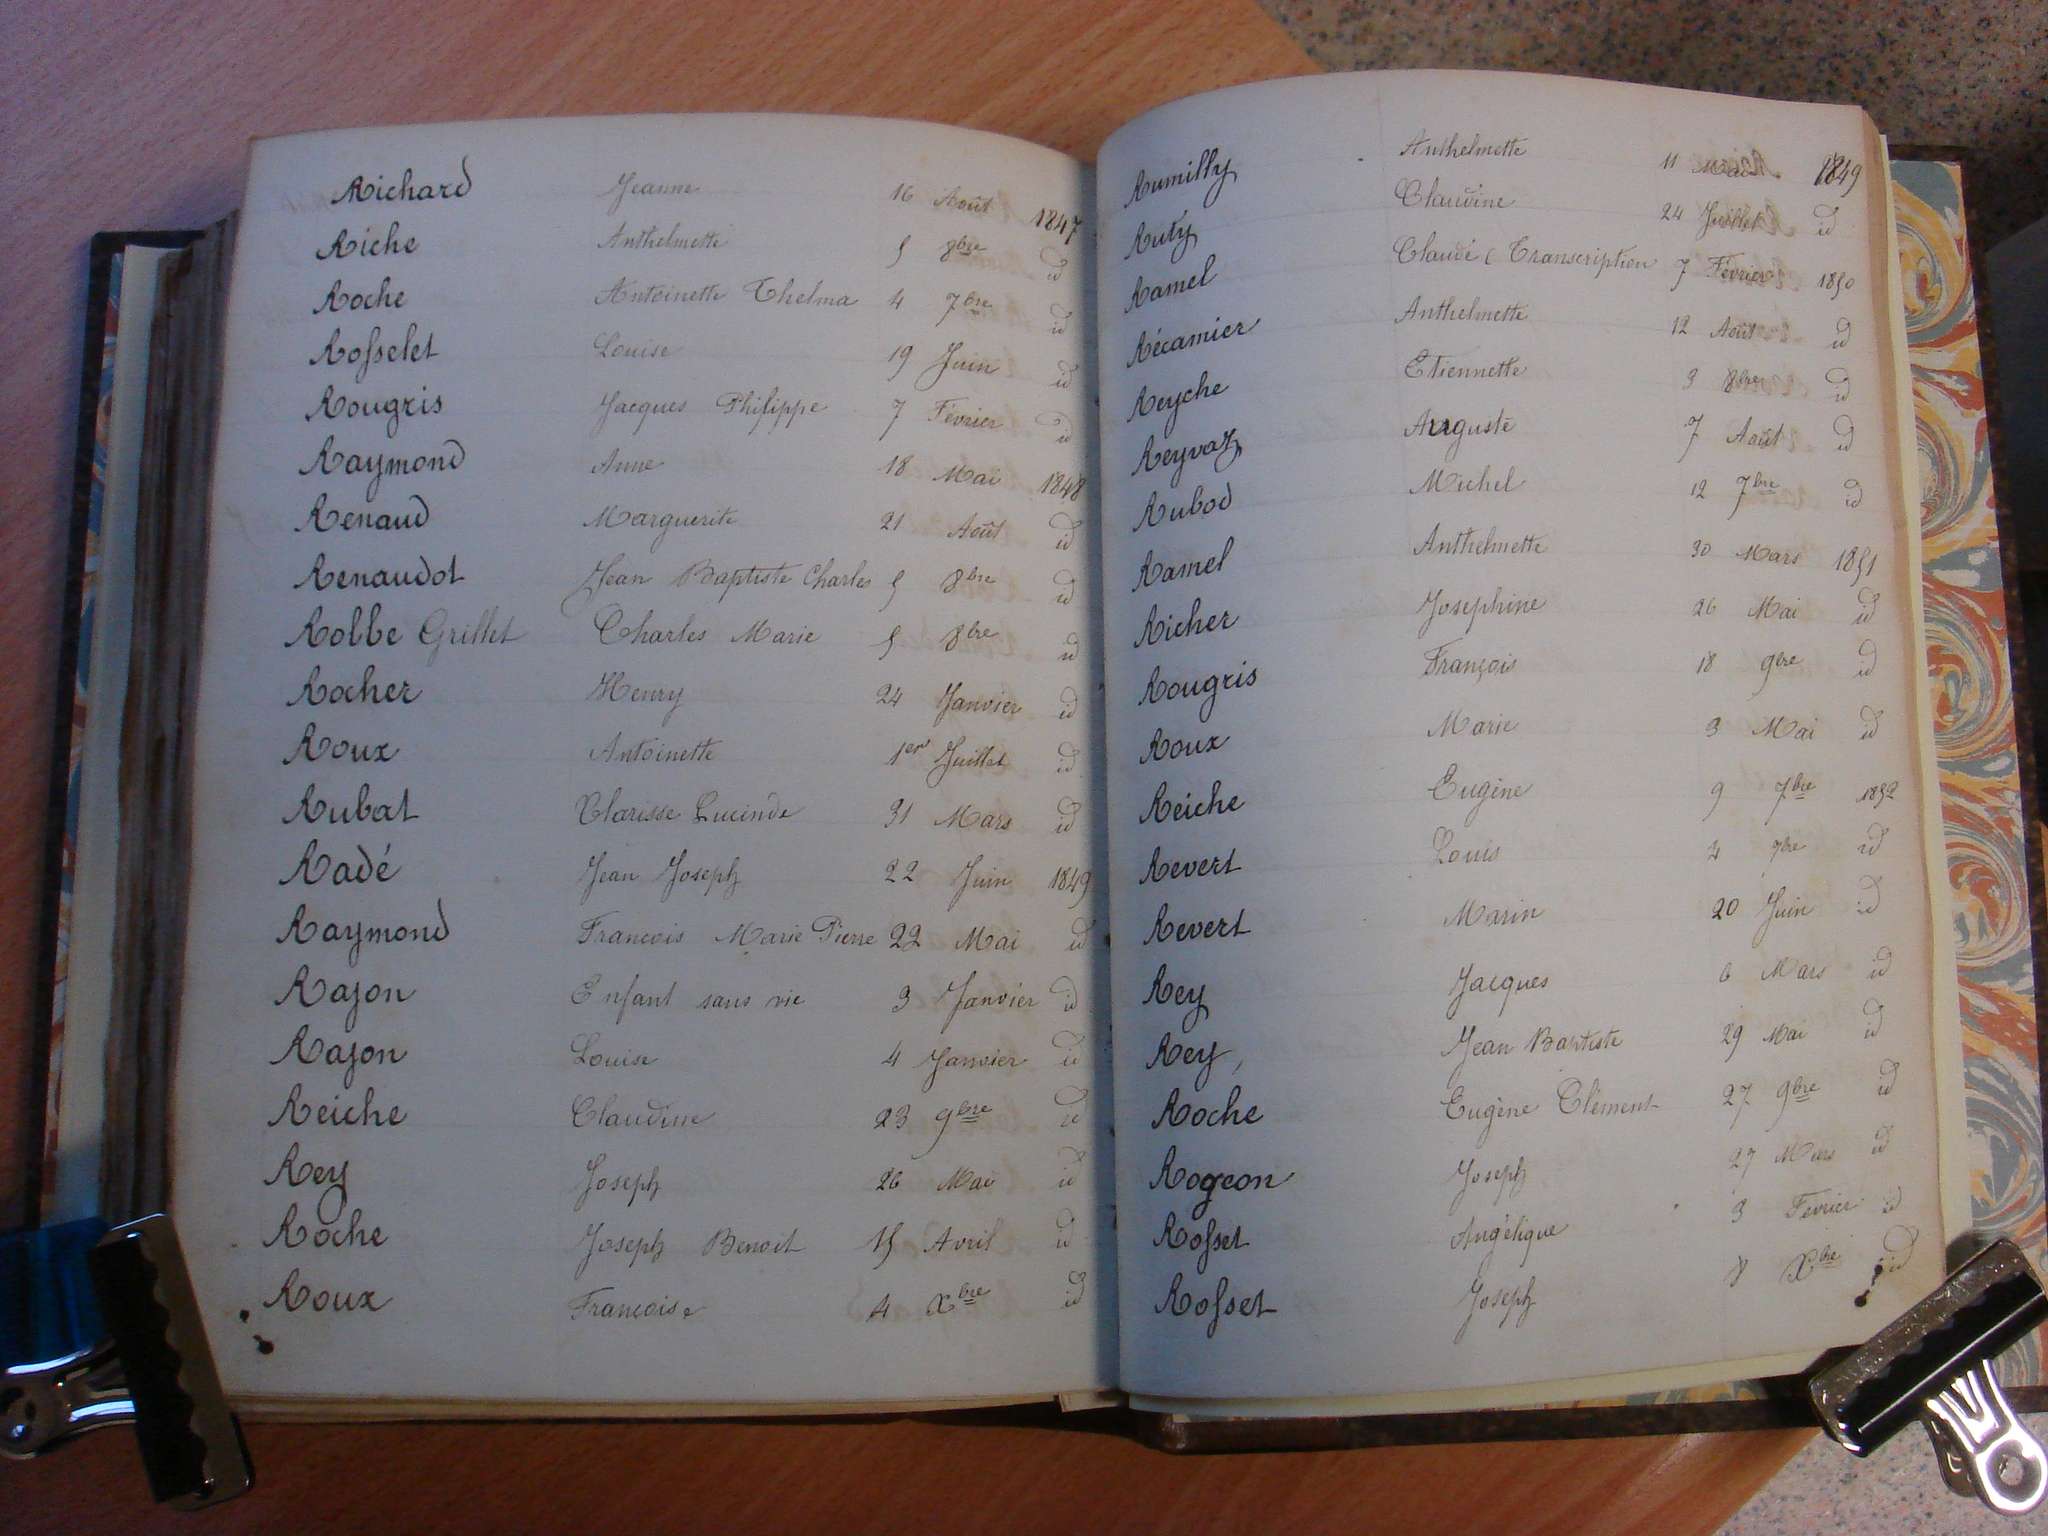 Richard Jeanne 16 Août 1847
Riche Anthelmette 5 8bre id
Roche Antoinette Thelma 4 7bre id
Rosselet Louise 19 Juin id
Rougris Jacques Philippe 7 Février id
Raymond Anne 18 Mai 1848
Renaud Marguerite 21 Août id
Renaudot Jean Baptiste Charles 5 8bre id
Robbe Grillet Charles Marie 5 8bre id
Rocher Henry 24 Janvier id
Roux Antoinette 1er Juillet id
Rubat Clarisse Lucinde 31 Mars id
Radé Jean Joseph 22 Juin 1849
Raymond François Marie Pierre 22 Mai id
Rajon Enfant sans vie 3 Janvier id
Rajon Louise 4 Janvier id
Reiche Claudine 23 9bre id
Rey Joseph 26 Mai id
Roche Joseph Benoit 15 Avril id
Roux Françoise 4 Xbre id
Rumilly Anthelmette 11 1849
Ruty Claudine 24 Juillet id
Ramel Claude ( Transcription 7 Février 1850
Récamier Anthelmette 12 Août id
Reyche Etiennette 3 8bre id
Reyvaz Auguste 7 Août id
Rubod Michel 12 7bre id
Ramel Anthelmette 30 Mars 1851
Richer Josephine 26 Mai id
Rougris François 18 9bre id
Roux Marie 3 Mai id
Reiche Eugène 9 7bre 1852
Revert Louis 4 9bre id
Revert Marin 20 Juin id
Rey Jacques 6 Mars id
Rey, Jean Baptiste 29 Mai id
Roche Eugène Clément 27 9bre id
Rogeon Joseph 27 Mars id
Rosset Angélique 3 Février id
Rosset Joseph 8 Xbre id